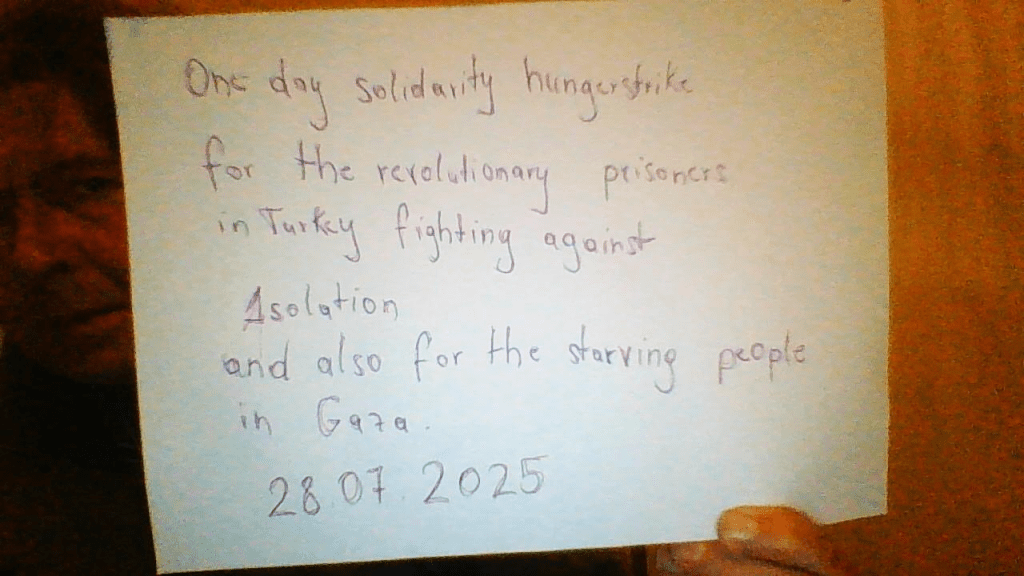 One day solidarity hungerstrike
for the revolutionary prisoners
in Turkey fighting against
Isolation
and also for the starving people
in Gaza.
28.07.2025